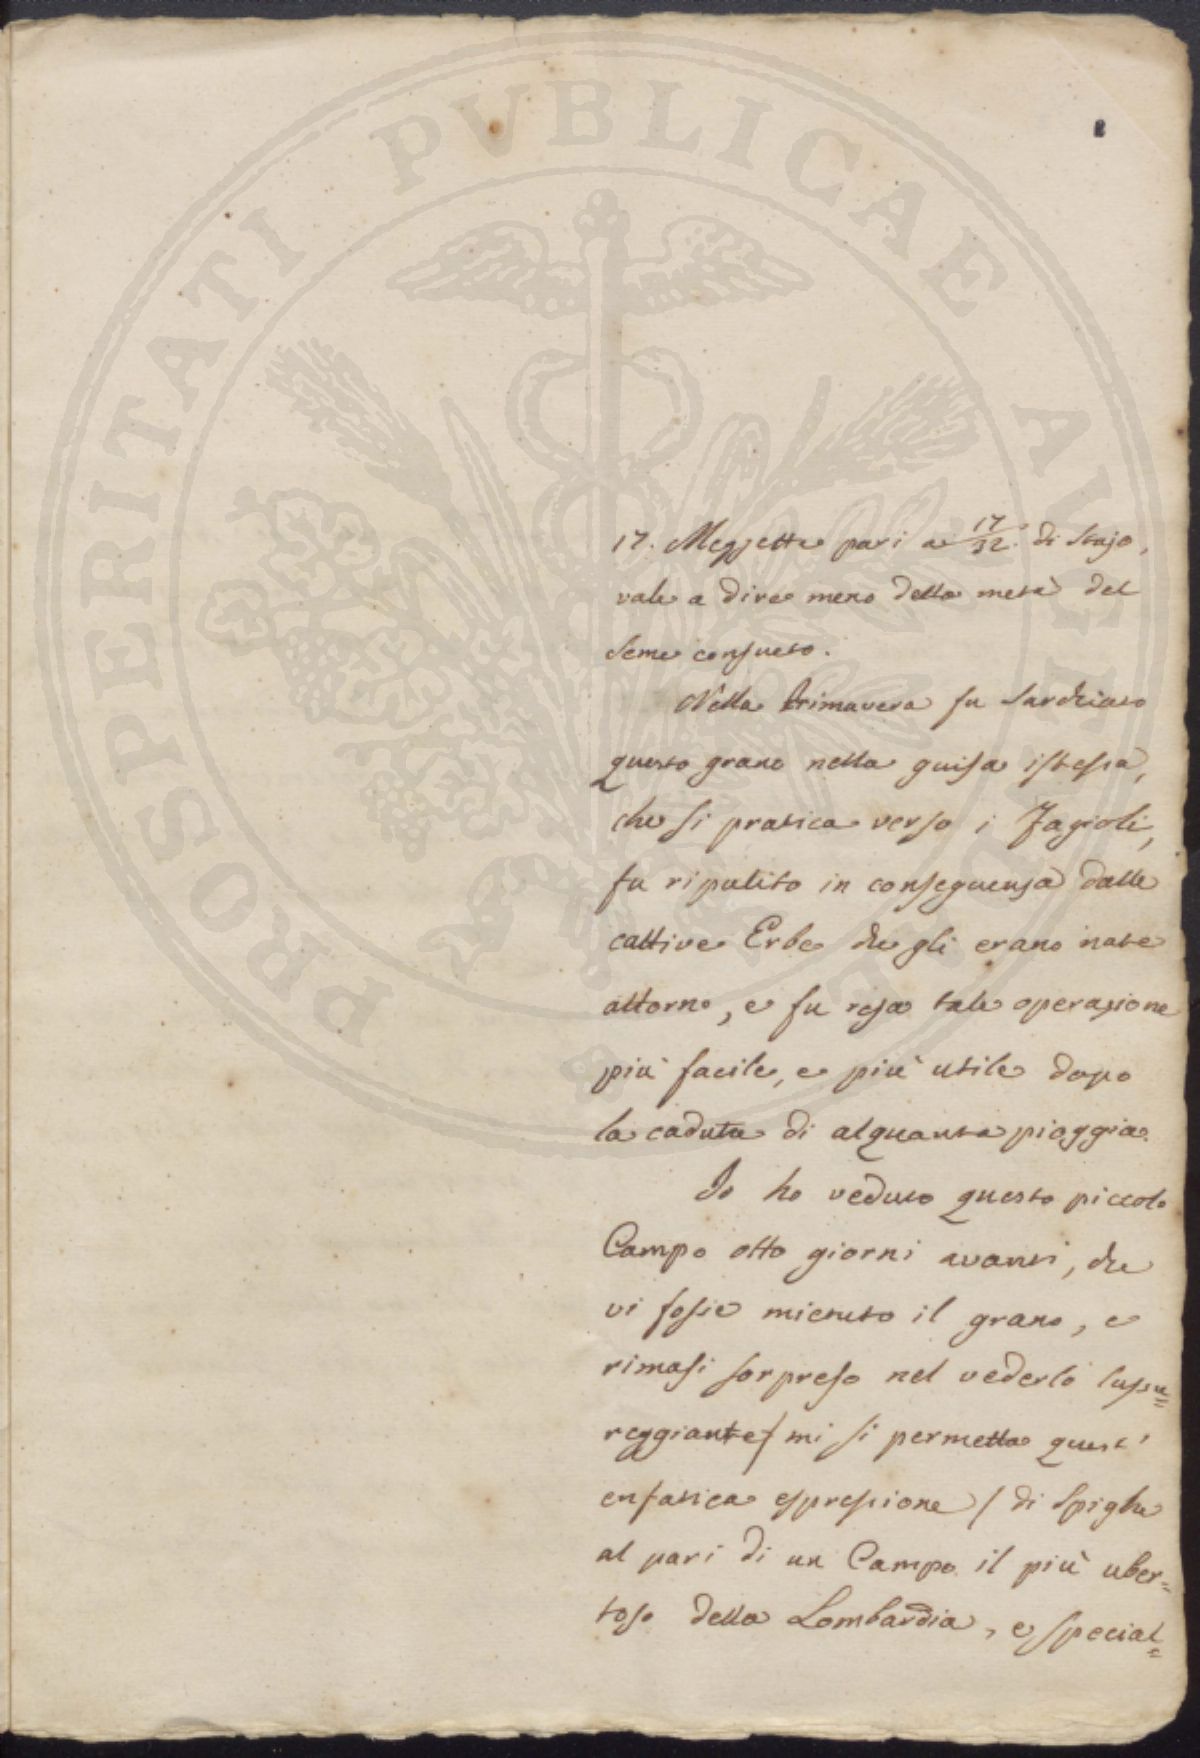 PROSPERITATI PVBLICAE AVGENDAE
17. Mezzette pari a 17/32. di Stajo,
vale a dire meno della metà del
seme consueto.
Nella Primavera fu sarchiato
questo grano nella guisa istessa,
che si pratica verso i Fagioli,
fu ripulito in conseguenza dalle
cattive Erbe che gli erano nate
attorno, e fu resa tale operazione
più facile, e più utile dopo
la caduta di alquanta pioggia.
Io ho veduto questo piccolo
Campo otto giorni avanti, che
vi fosse mietuto il grano, e
rimasi sorpreso nel vederlo lussu=
reggiante / mi si permetta quest'
enfatica espressione / di Spighe
al pari di un Campo il più uber=
toso della Lombardia, e special=